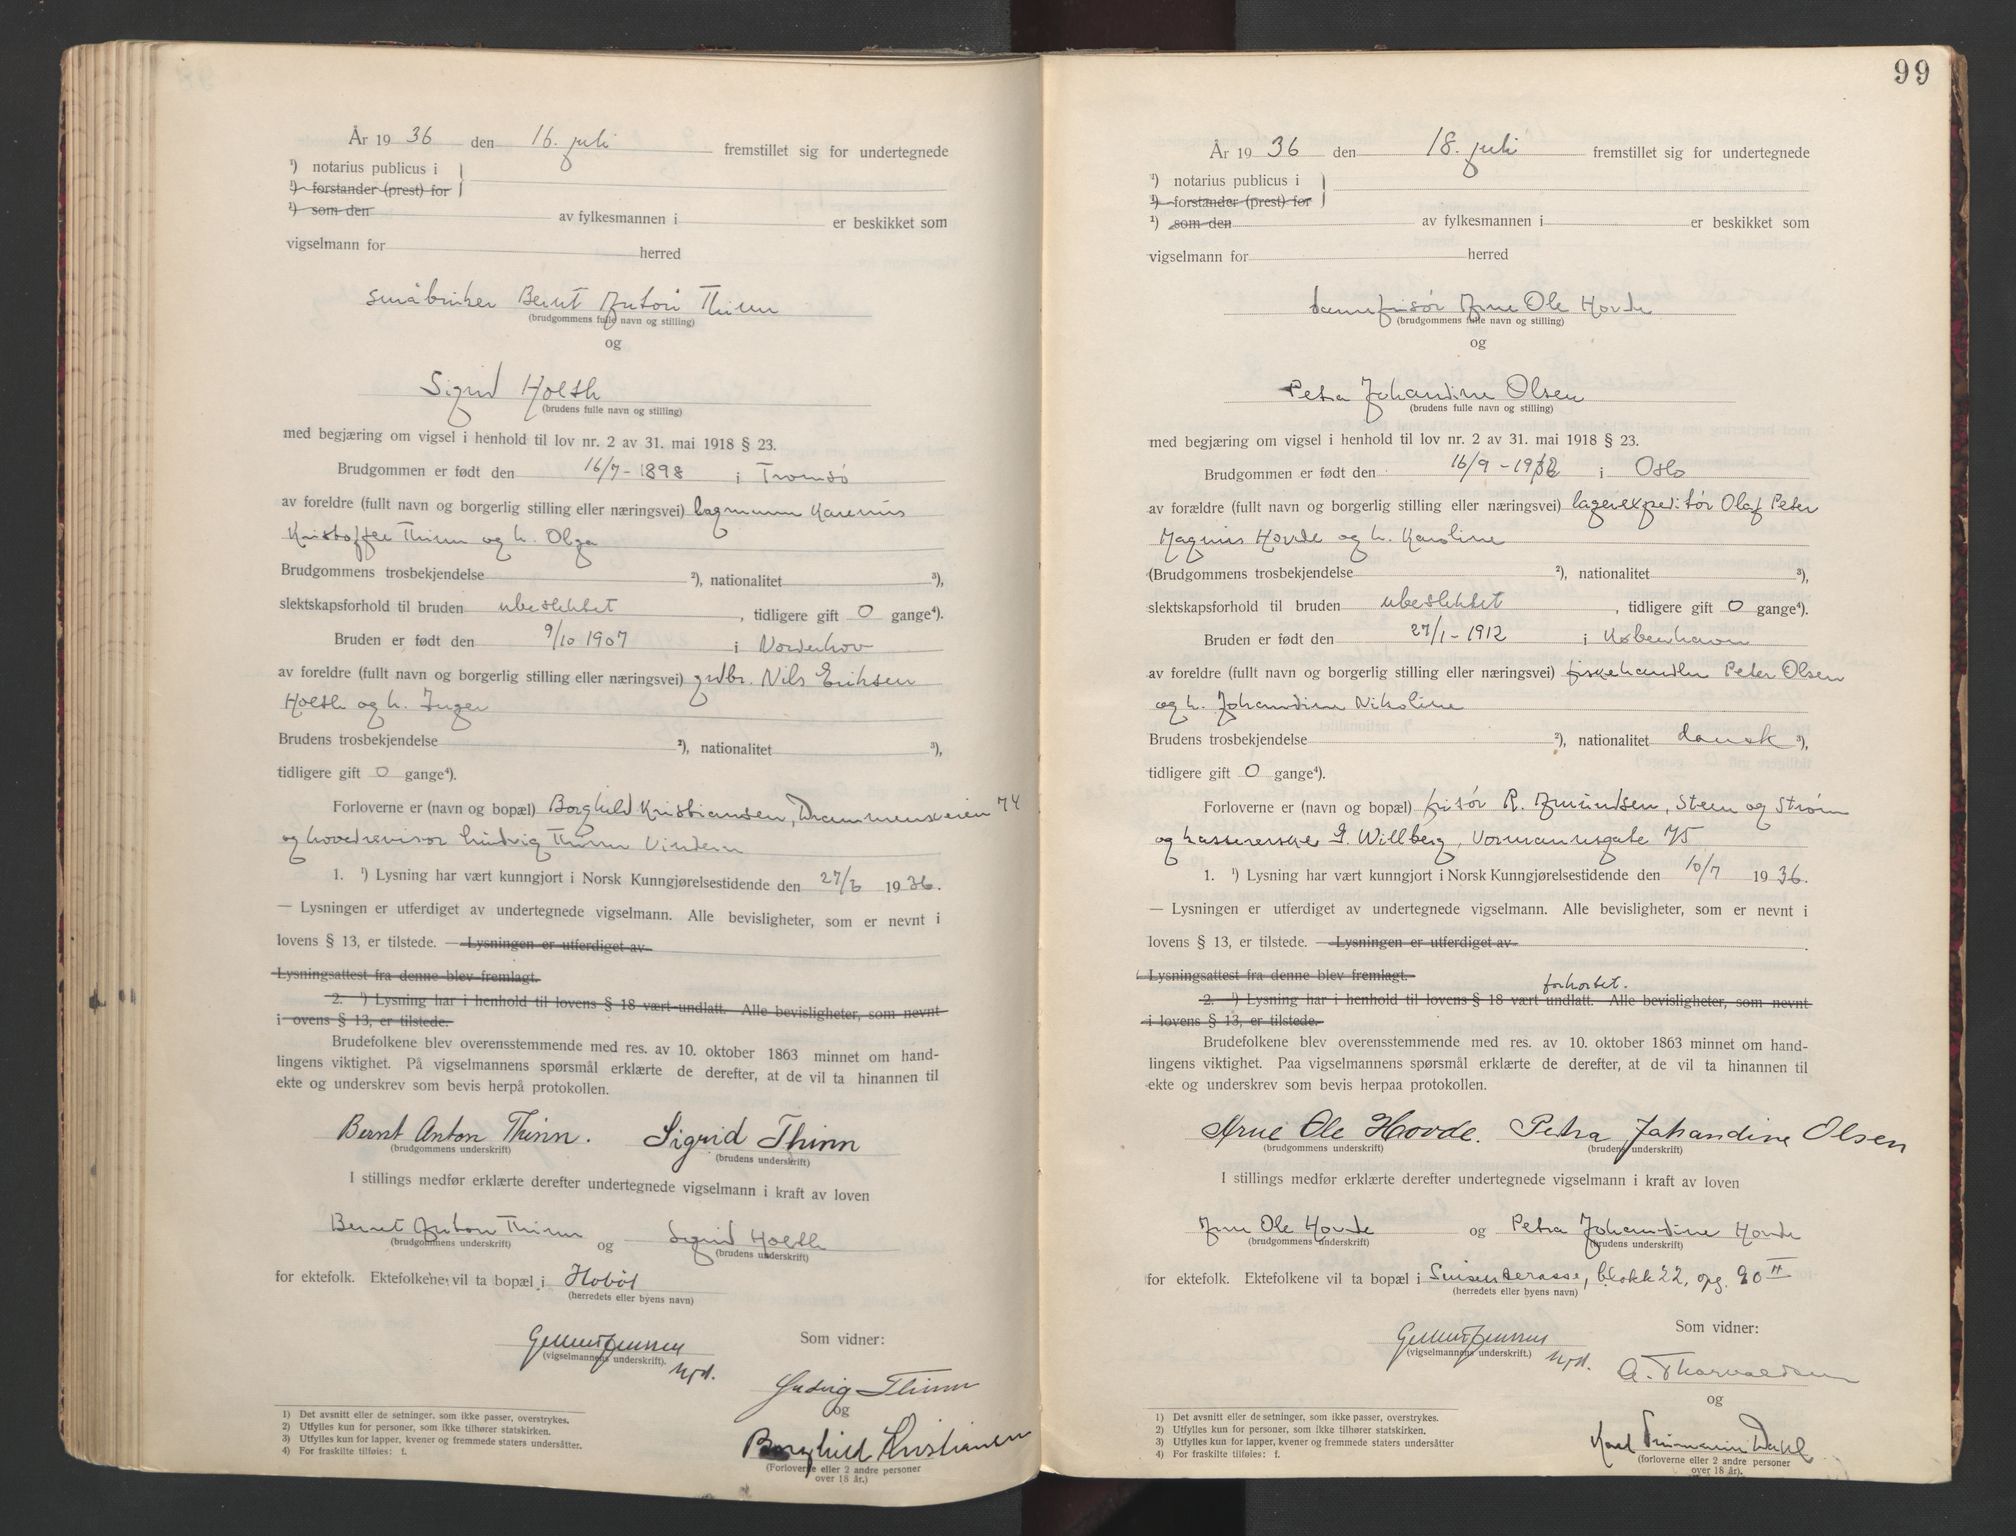 År 19 36 den 16. juli fremstillet sig for undertegnede
¹) notarius publicus i
¹) forstander (prest) for
¹) som den av fylkesmannen i er beskikket som
vigselmann for herred
småbruker Bernt Anton Thinn
(brudgommens fulle navn og stilling)
og
Sigrid Holth
(brudens fulle navn og stilling)
med begjæring om vigsel i henhold til lov nr. 2 av 31. mai 1918 § 23.
Brudgommen er født den 16/7 - 1898 i Tromsø
av foreldre (fullt navn og borgerlig stilling eller næringsvei) lagmann Karenius
Kristoffer Thinn og h. Olga
Brudgommens trosbekjendelse ²), nationalitet ³),
slektskapsforhold til bruden ubeslektet, tidligere gift 0 gange⁴).
Bruden er født den 9/10 1907 i Norderhov
av foreldre (fullt navn og borgerlig stilling eller næringsvei) grdbr. Nils Eriksen
Holth og h. Inger
Brudens trosbekjendelse ²), nationalitet ³),
tidligere gift 0 gange⁴).
Forloverne er (navn og bopæl) Borghild Kristiansen, Drammensveien 74
og hovedrevisor Ludvig Thinn Vindern
1. ¹) Lysning har vært kunngjort i Norsk Kunngjørelsestidende den 27/6 19 36.
— Lysningen er utferdiget av undertegnede vigselmann. Alle bevisligheter, som er nevnt i
lovens § 13, er tilstede. — Lysningen er utferdiget av
Lysningsattest fra denne blev fremlagt.
2. ¹) Lysning har i henhold til lovens § 18 vært undlatt. Alle bevisligheter, som nevnt
i ovens § 13, er tilstede.
Brudefolkene blev overensstemmende med res. av 10. oktober 1863 minnet om hand-
lingens viktighet. På vigselmannens spørsmål erklærte de derefter, at de vil ta hinannen til
ekte og underskrev som bevis herpå protokollen.
Bernt Anton Thinn. Sigrid Thinn
(brudgommens underskrift) (brudens underskrift)
I stillings medfør erklærte derefter undertegnede vigselmann i kraft av loven
Bernt Anton Thinn og Sigrid Holth
(brudgommens underskrift) (brudens underskrift)
for ektefolk. Ektefolkene vil ta bopæl i Hobøl
(herredets eller byens navn)
Som vidner:
(vigselmannens underskrift).
Ludvig Thinn
og
Borghild Kristiansen
(Forloverne eller 2 andre personer
over 18 år.)
1) Det avsnitt eller de setninger, som ikke passer, overstrykes.
2) Utfylles kun for personer, som ikke tilhører statskirken.
3) Utfylles kun for lapper, kvener og fremmede staters undersåtter.
4) For fraskilte tilføies: f.
99
År 19 36 den 18. juli fremstillet sig for undertegnede
¹) notarius publicus i
¹) forstander (prest) for
¹) som den av fylkesmannen i er beskikket som
vigselmann for herred
damefrisør Arne Ole Hovde
(brudgommens fulle navn og stilling)
og
Petra Johandine Olsen
(brudens fulle navn og stilling)
med begjæring om vigsel i henhold til lov nr. 2 av 31. mai 1918 § 23.
Brudgommen er født den 16/9 - i Oslo
av forældre (fullt navn og borgerlig stilling eller næringsvei) lagerexpeditør Olaf Peter
Magnus Hovde og h. Karoline
(Brudgommens trosbekjendelse ²), nationalitet ³),
slektskapsforhold til bruden ubeslektet, tidligere gift 0 gange⁴).
Bruden er født den 27/1 - 1912 i København
av foreldre (fullt navn og borgerlig stilling eller næringsvei) fiskehandler Peter Olsen
og h. Johandine Nikoline
Brudens trosbekjendelse ²), nationalitet dansk ³),
tidligere gift 0 gange⁴).
Forloverne er (navn og bopæl) frisør R. Amundsen, Steen og Strøm
og kassererske G. Willberg, Vormannsgate 75
1. ¹) Lysning har vært kunngjort i Norsk Kunngjørelsestidende den 10/7 19 36.
— Lysningen er utferdiget av undertegnede vigselmann. Alle bevisligheter, som er nevnt i
lovens § 13, er tilstede. — Lysningen er utferdiget av
Lysningsattest fra denne blev fremlagt.
forkortet.
2. ¹) Lysning har i henhold til lovens § 18 vært undlatt. Alle bevisligheter, som nevnt
i lovens § 13, er tilstede.
Brudefolkene blev overensstemmende med res. av 10. oktober 1863 minnet om hand-
lingens viktighet. Paa vigselmannens spørsmål erklærte de derefter, at de vil ta hinannen til
ekte og underskrev som bevis herpaa protokollen.
Arne Ole Hovde. Petra Johandine Olsen
(brudgommens underskrift) (brudens underskrift)
I stillings medfør erklærte derefter undertegnede vigselmann i kraft av loven
Arne Ole Hovde og Petra Johandine Hovde
(brudgommens underskrift) (brudens underskrift)
for ektefolk. Ektefolkene vil ta bopæl i Sinsenterasse, blokk 22, opg. 20 II
(herredets eller byens navn)
Som vidner:
(vigselmannens underskrift.)
A. Thorvaldsen
og
Dahl
(forloverne eller 2 andre personer
over 18 år).
1) Det avsnitt eller de setninger, som ikke passer, overstrykes.
2) Utfylles kun for personer, som ikke tilhører statskirken.
3) Utfylles kun for lapper, kvener og fremmede staters undersåtter
4) For fraskilte tilføies: f.